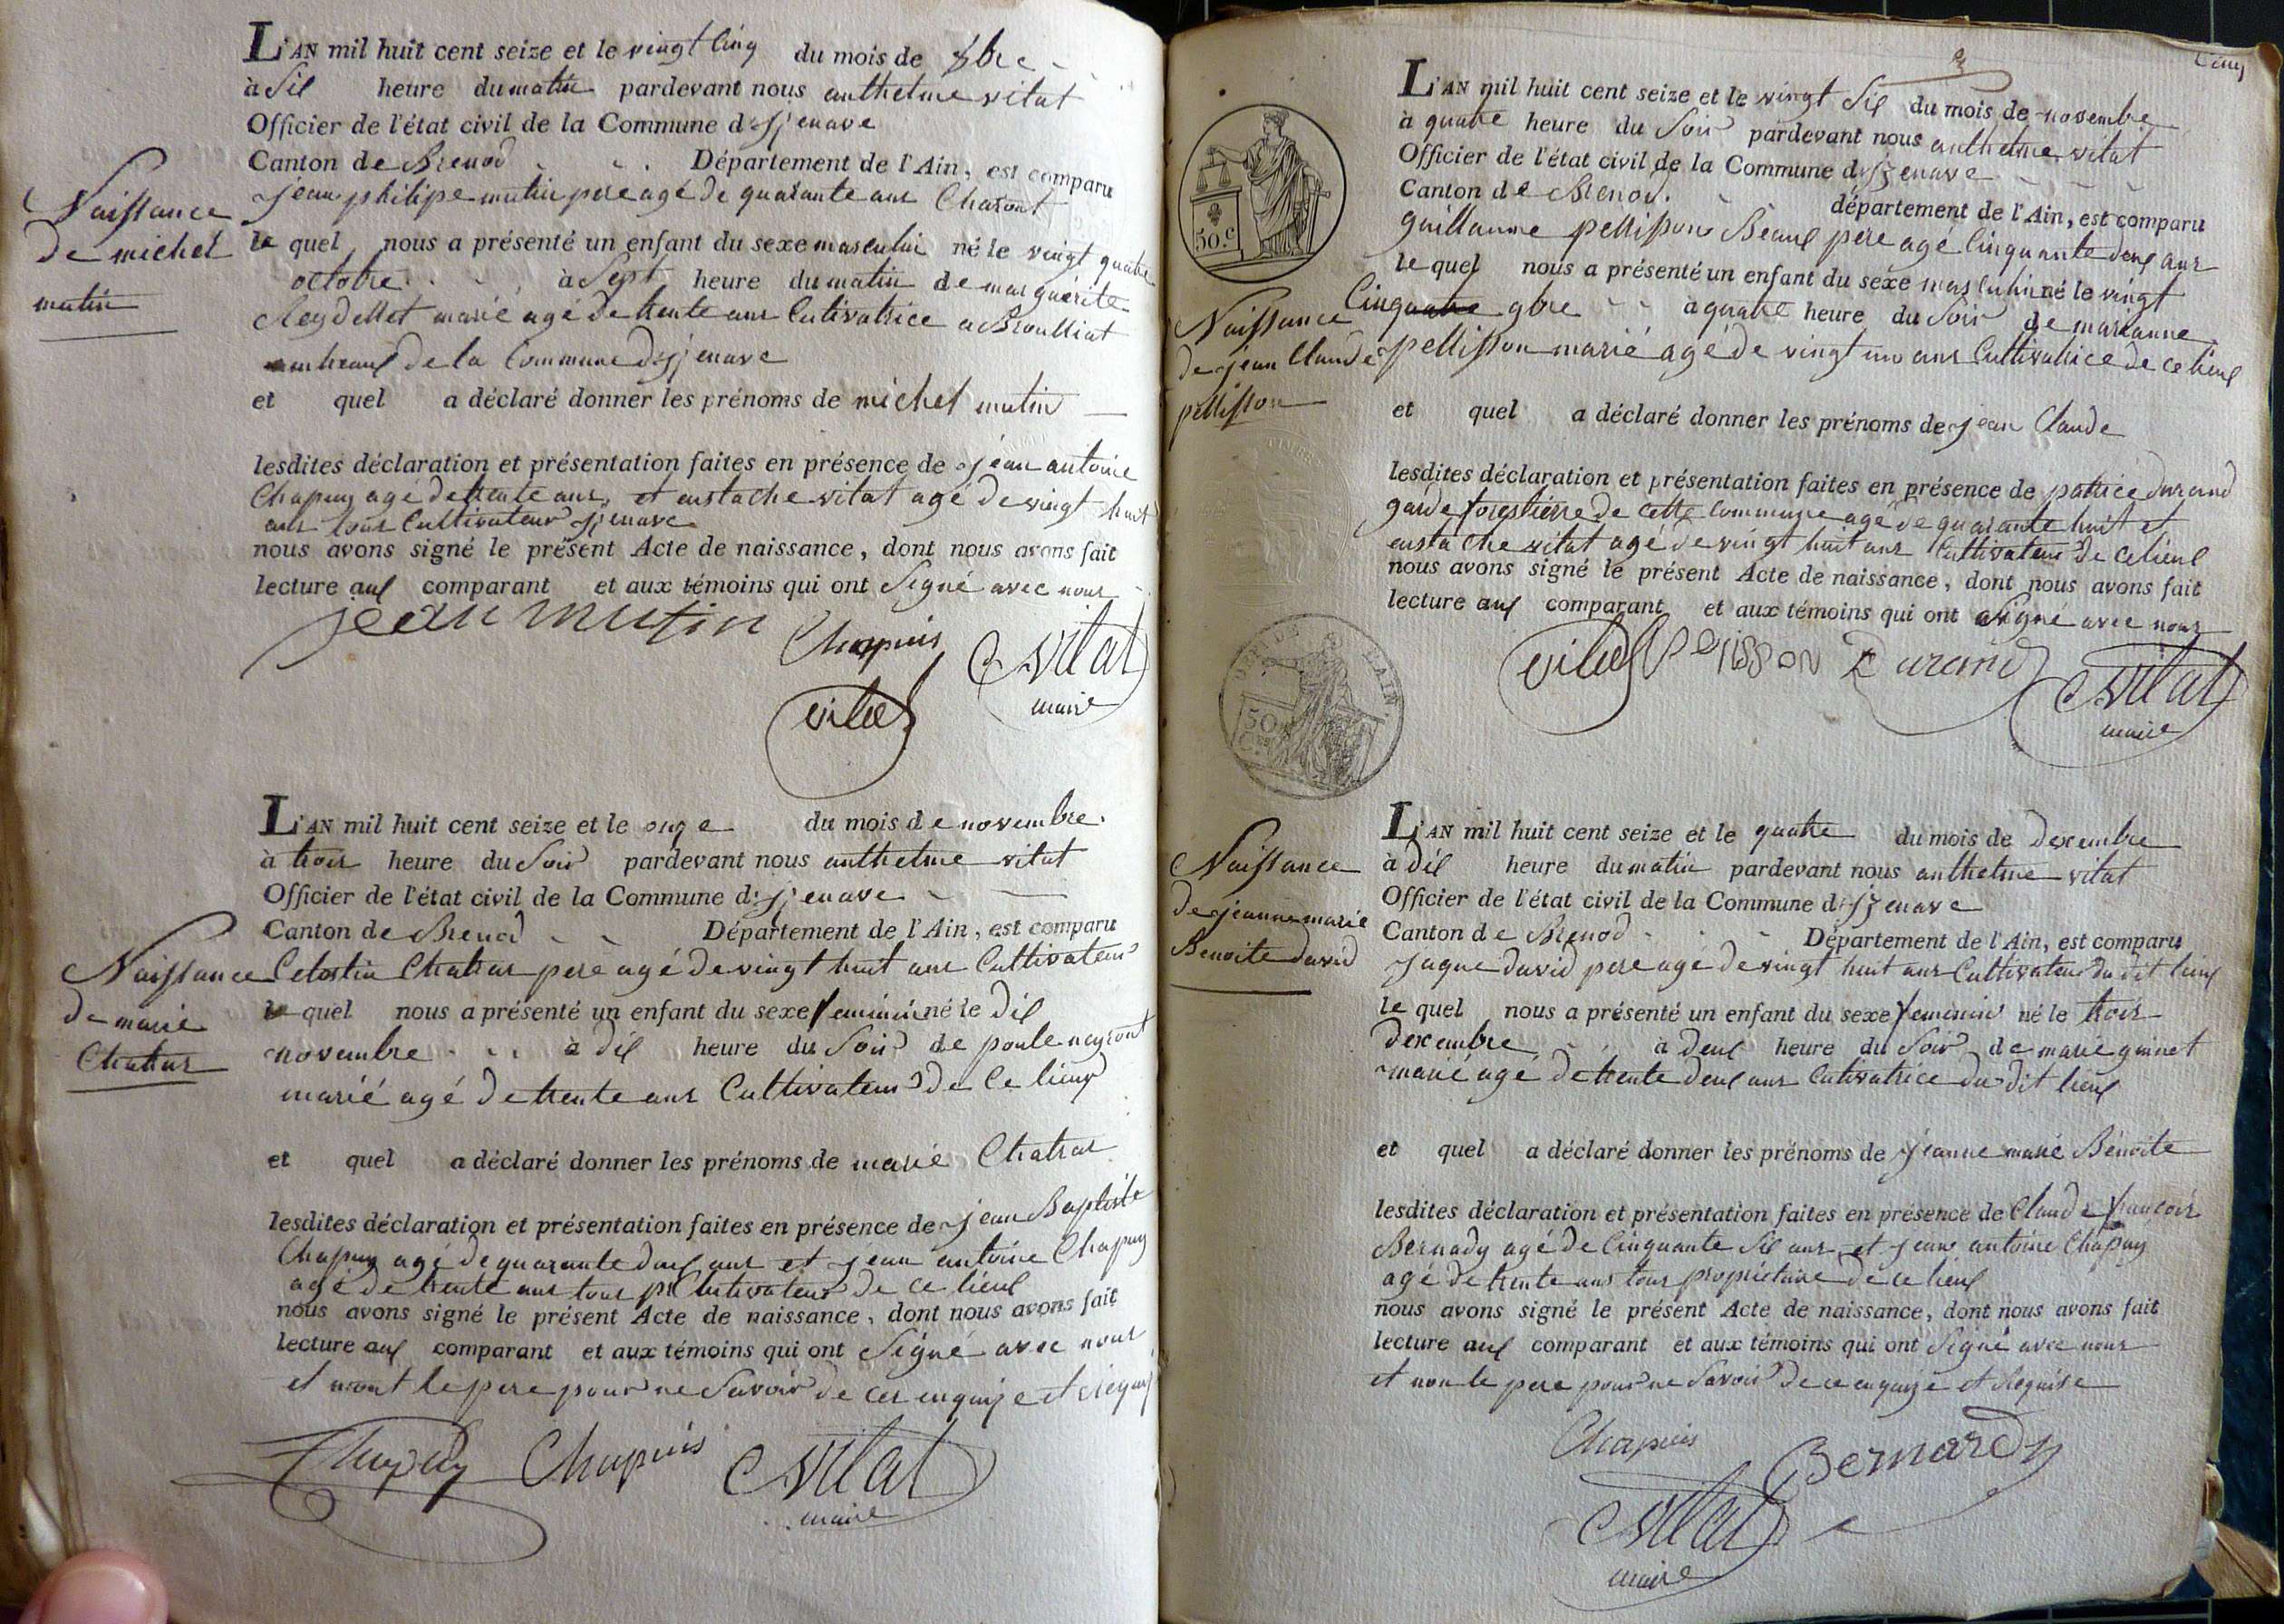 L'AN mil huit cent seize et le vingt cinq du mois de 8bre
à six heure du matin pardevant nous anthelme vitat
Officier de l'état civil de la Commune d'izenave
Canton de Brenod Département de l'Ain, est comparu
jean philipe mutin pere agé de quarante ans
le quel nous a présenté un enfant du sexe masculin né le vingt quatre
octobre à sept heure du matin de marguerite
Reydellet marié agé de trente ans Cutivatrice a
hameaux de la Commune d'izenave
et quel a déclaré donner les prénoms de michel mutin
lesdites déclaration et présentation faites en présence de jean antoine
Chapuy agé de trente ans, et eustache vitat agé de vingt huit
ans tous Cultivateur izenave
nous avons signé le présent Acte de naissance, dont nous avons fait
lecture aux comparant et aux témoins qui ont signé avec nous
jean mutin Chapuis Vitat
maire
vitat
Naissance
de michel
mutin
L'AN mil huit cent seize et le onze du mois de novembre
à trois heure du soir pardevant nous anthelme vitat
Officier de l'état civil de la Commune d'izenave
Canton de Brenod Département de l'Ain, est comparu
Celestin Chatrar pere agé de vingt huit ans Cultivateur
le quel nous a présenté un enfant du sexe feminin né le dix
novembre à dix heure du soir de
marié agé de trente ans Cultivateur de Ce lieux
et quel a déclaré donner les prénoms de marie Chatrar
lesdites déclaration et présentation faites en présence de jean Baptiste
Chapuy agé de quarante deux ans et jean antoine Chapuy
agé de trente ans tous Cutivateur de ce lieux
nous avons signé le présent Acte de naissance, dont nous avons fait
lecture aux comparant et aux témoins qui ont signé avec nous
et le pere pour ne savoir de
Chapuy Chapuis Vitat
maire
Naissance
de marie
Chatrar
L'AN mil huit cent seize et le vingt six du mois de novembre
à quatre heure du soir pardevant nous anthelme vitat
Officier de l'état civil de la Commune d'izenave
Canton de Brenod département de l'Ain, est comparu
guillaume pellisson Beaux pere agé Cinquante deux ans
le quel nous a présenté un enfant du sexe masculin né le vingt
Cinq 9bre à quatre heure du soir de marianne
pellisson marié agé de vingt un ans Cultivatrice de ce lieux
et quel a déclaré donner les prénoms de jean Claude
lesdites déclaration et présentation faites en présence de patrice durand
garde forestiere de cette Commune agé de quarante huit et
eustache vitat agé de vingt huit ans Cultivateur de ce lieux
nous avons signé le présent Acte de naissance, dont nous avons fait
lecture aux comparant et aux témoins qui ont signé avec nous
vitat pelisson Durand Vitat
maire
50.c
Naissance
de jean Claude
pellisson
L'AIN.
50
L'AN mil huit cent seize et le quatre du mois de decembre
à dix heure du matin pardevant nous anthelme vitat
Officier de l'état civil de la Commune d'izenave
Canton de Brenod Département de l'Ain, est comparu
jaque david pere agé de vingt huit ans Cultivateur du dit lieux
le quel nous a présenté un enfant du sexe feminin né le trois
decembre à deux heure du soir de marie guinet
marié agé de trente deux ans Cutivatrice du dit lieux
et quel a déclaré donner les prénoms de jeanne marie Benoite
lesdites déclaration et présentation faites en présence de Claude françois
Bernady agé de Cinquante six ans et jean antoine Chapuy
agé de trente ans tous propriétaire de ce lieux
nous avons signé le présent Acte de naissance, dont nous avons fait
lecture aux comparant et aux témoins qui ont signé avec nous
et non le pere pour ne savoir de ce enquise et Réquise
Chapuis Bernardy
Vitat
maire
Naissance
de jeanne marie
Benoite david